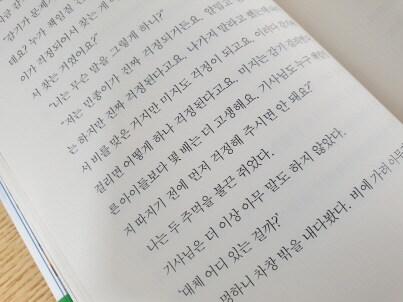 "감기가 문제
대요? 누가 책임질
이가 걱정되어서 찾는 게
서 찾는 거였어요?"
"너는 무슨 말을 그렇게 하니?"
"저는 민종이가 진짜 걱정되거든요. 얄밉고
는 하지만 진짜 걱정된다고요. 나가지 말라고 했는데
서 비를 맞은 거지만 미지도 걱정이 되고요. 이러다 감기
걸리면 어떻게 하나 걱정된다고요. 미지는 감기 걸리면 다
른 아이들보다 몇 배는 더 고생해요. 기사님도 누구
지 따지기 전에 먼저 걱정해 주시면 안 돼요?"
나는 두 주먹을 불끈 쥐었다.
기사님은 더 이상 아무 말도 하지 않았다.
'대체 어디 있는 걸까?'
멍하니 차창 밖을 내다봤다. 비에 가려